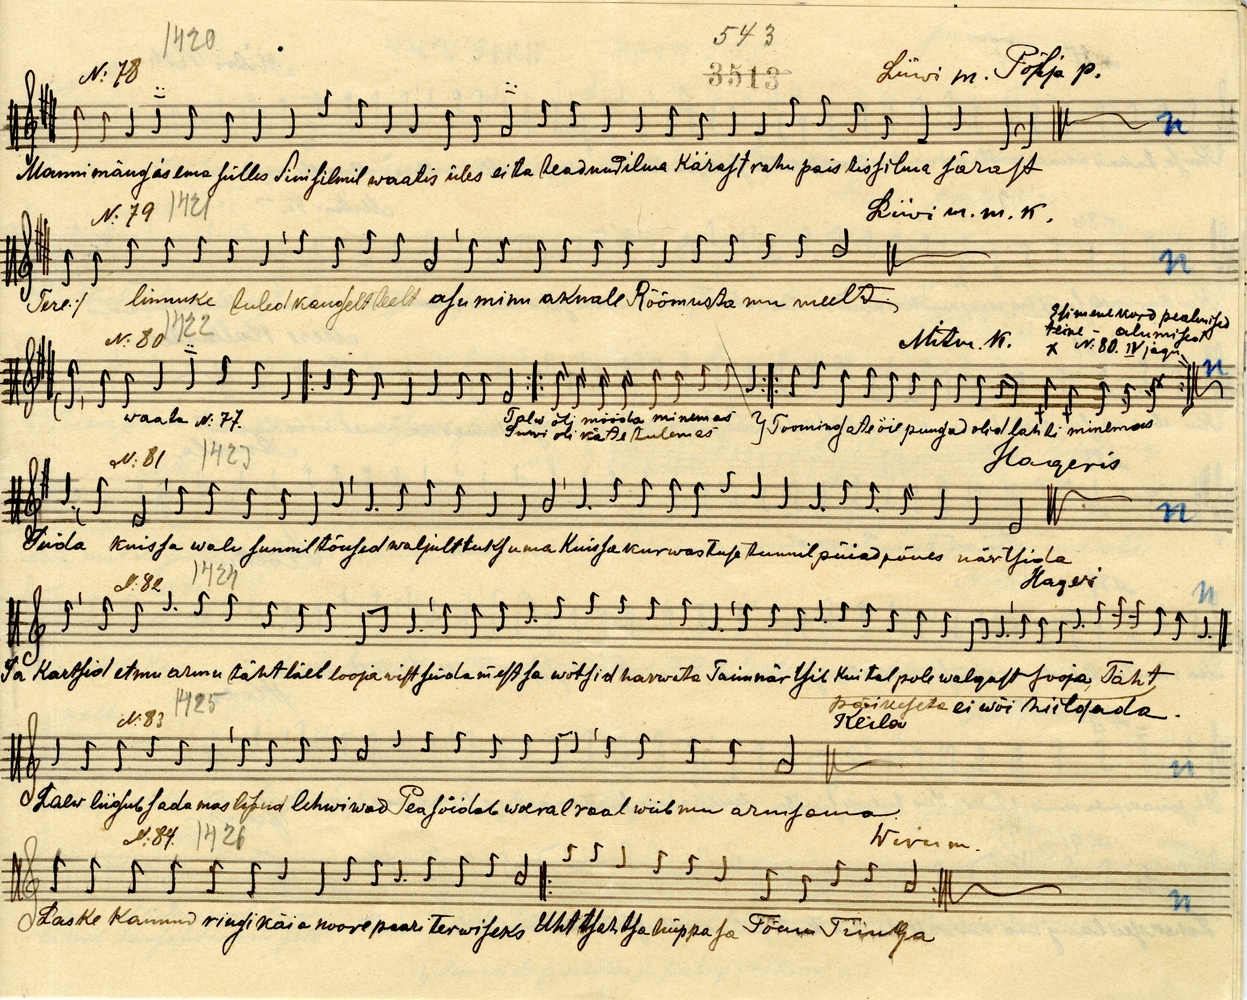 1420
543
3513
N: 78
Liiwi m. Põhja p.
Manni mängis ema sülles Sinisilmil waatis üles ei ta teadnud ilma Kärast rahu pais tis silma särast
N: 79 1421
Liiwi m. m. K.
Tere :/ linnuke tuled kaugelt teelt asu minu aknale Rõõmusta mu meelt
N: 80 1422
Mitm. K.
Esimene kord pealmised
teine - alumised
x N: 80. IV jagu
waata N: 77.
Talw oli mööda minemas
Suwi oli kätte tulemas
} Toomingate õie pungad olid lahti minemas
N: 81 1423
Hageris
Süda kuis sa walu sunnil tõused waljult tuksuma Kuis sa kurwastuse tunnil püiad põues närtsida
N: 82 1424
Hageri
Sa Kartsid et mu armu täht läel looja wist südamest sa wõtsid karwata Taim närtsil Kui tal pole walgust sooja, Täht
päikeseta ei wõi hiilgada.
N: 83 1425
Keila
Laew liigub sadamas lipud lehwiwad Peasõidab wæral raal wiib mu armsama.
N: 84. 1426
Wiru m.
Laske Kannud ringi käia noore paari terwiseks Uht tsah tsa hüppa sa Tõnu Triniga